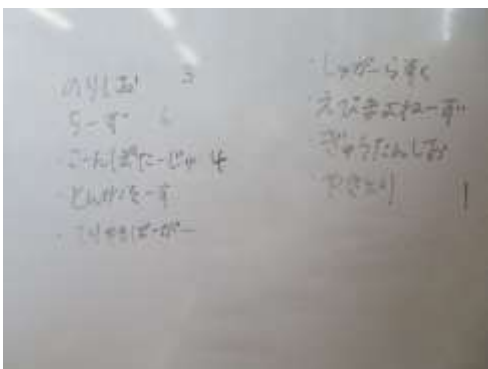 ・のりしお
・ちーず
・こーんぽたーじゅ 4
・とんかつそーす
・てりやきばーがー
・しゅがーらすく
・えびまよねーず
・ぎゅうたんしお
・やきとり 1